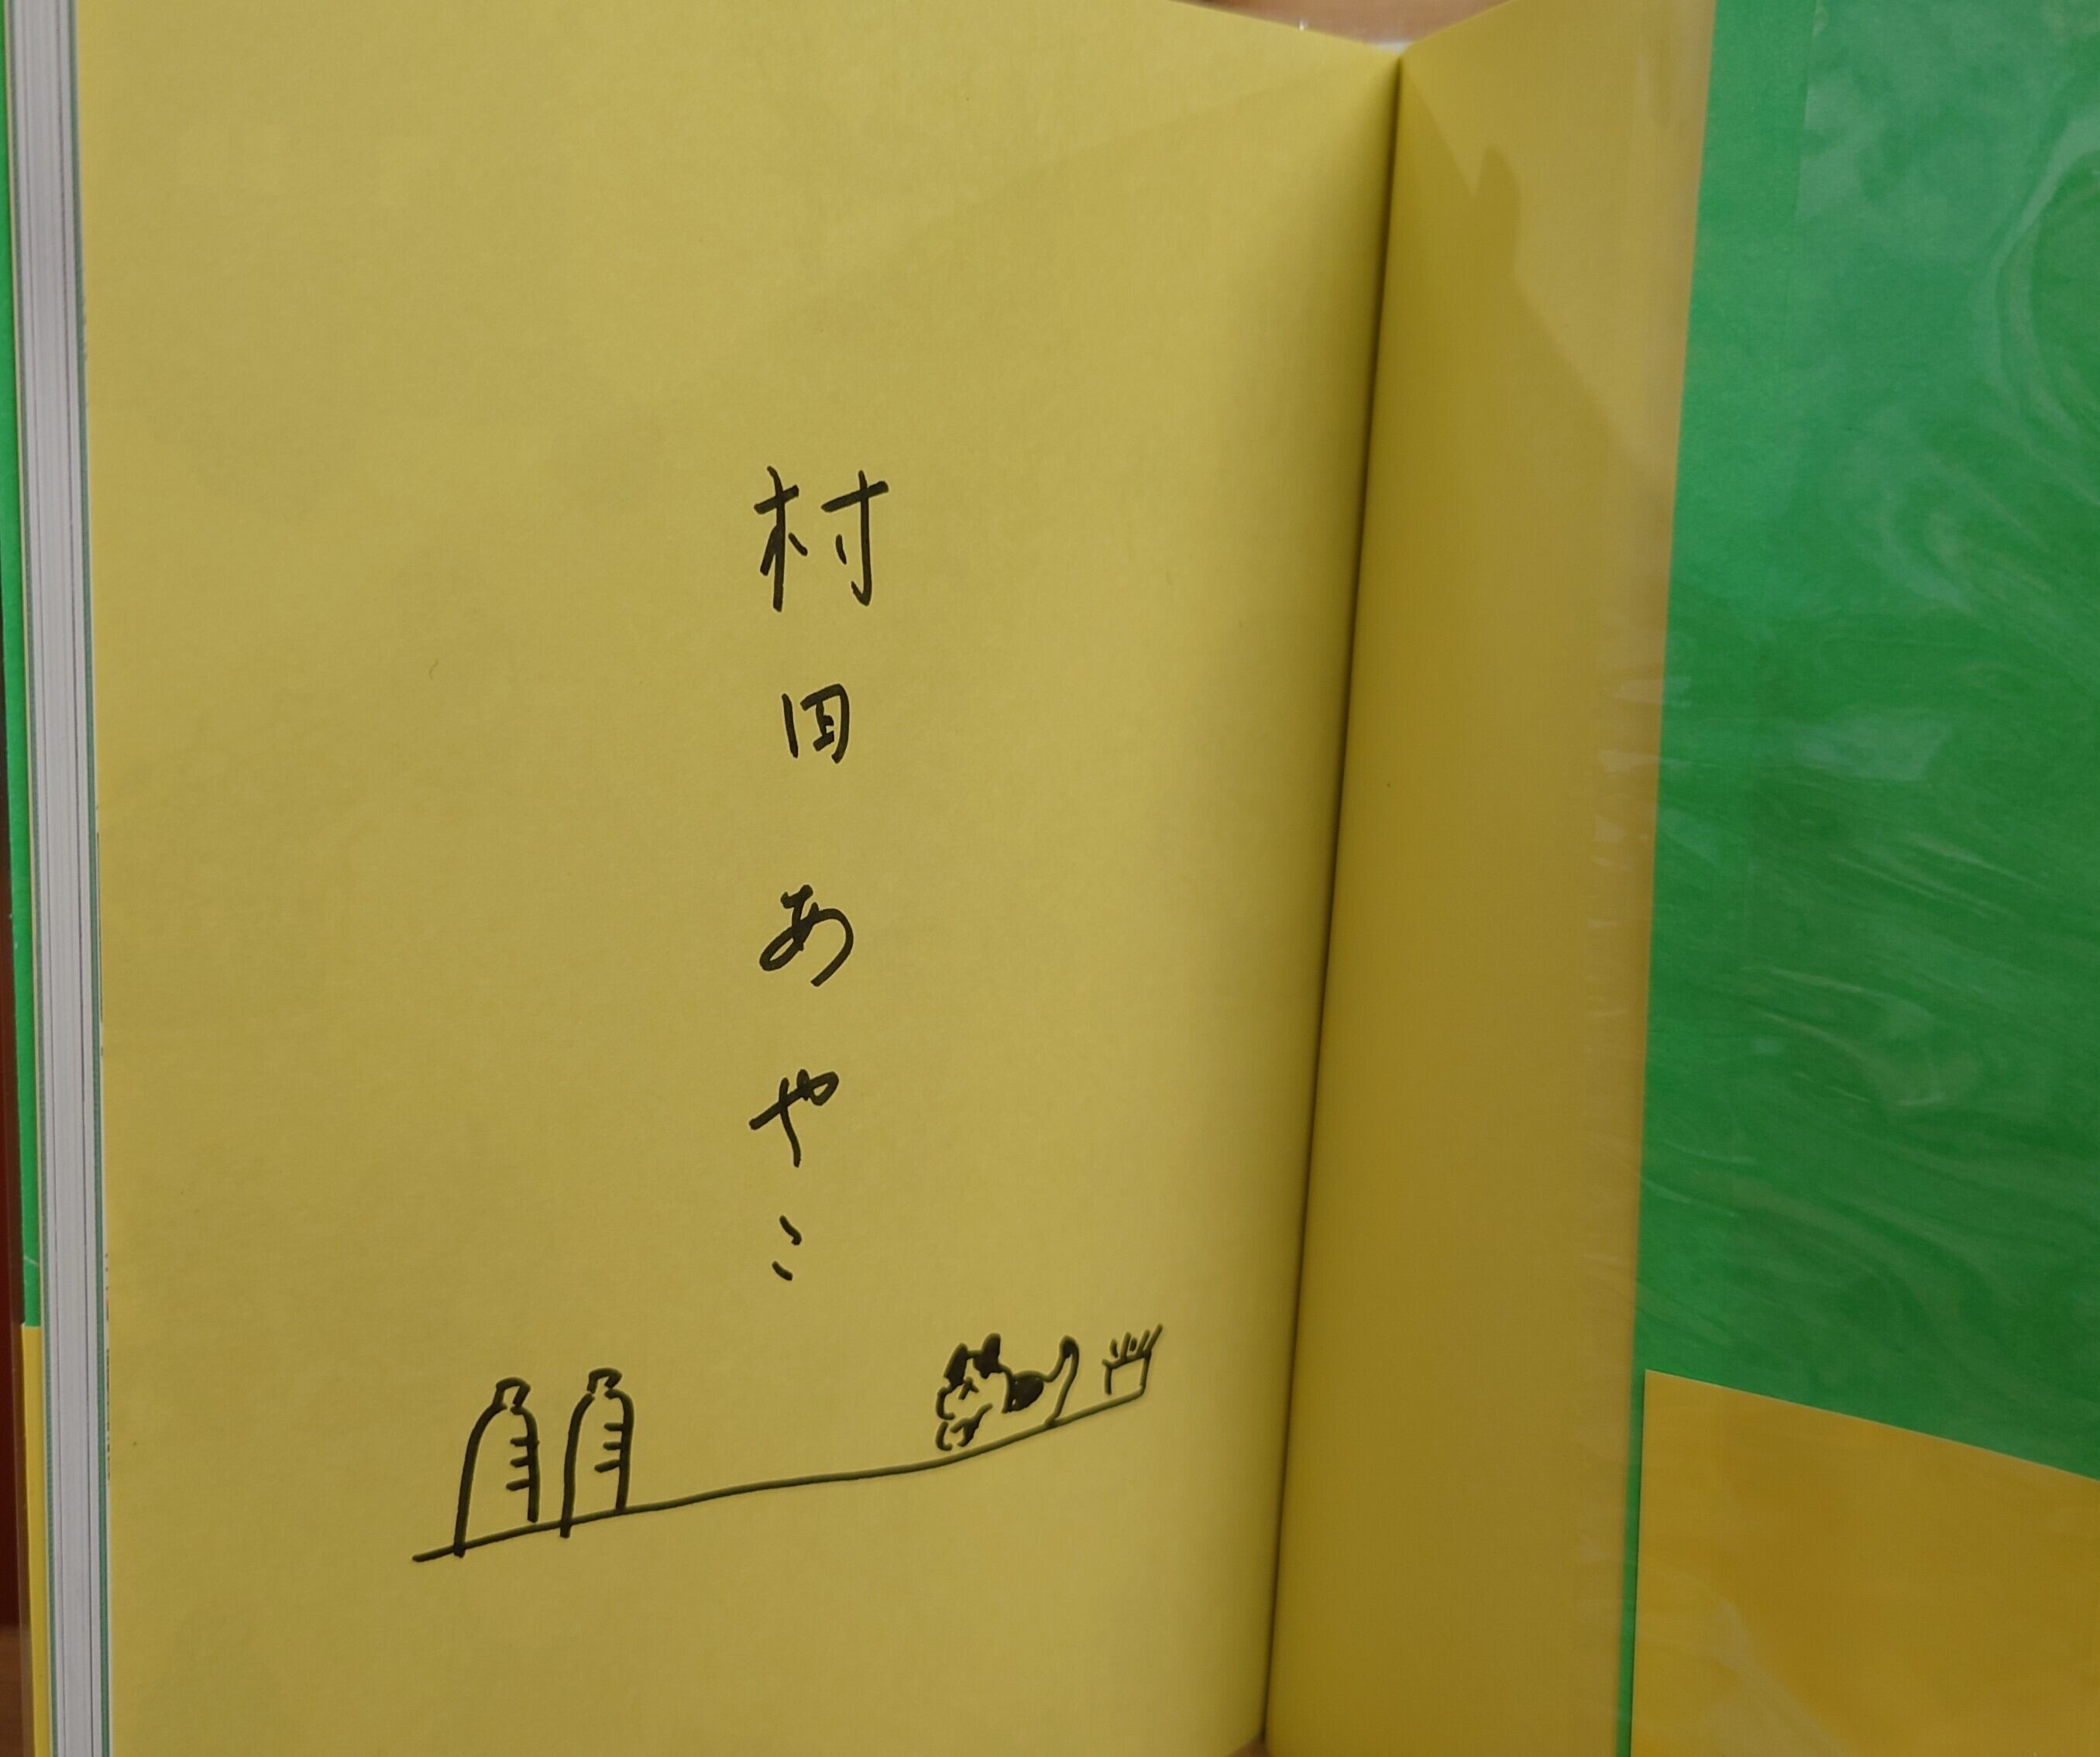 村田あやこ